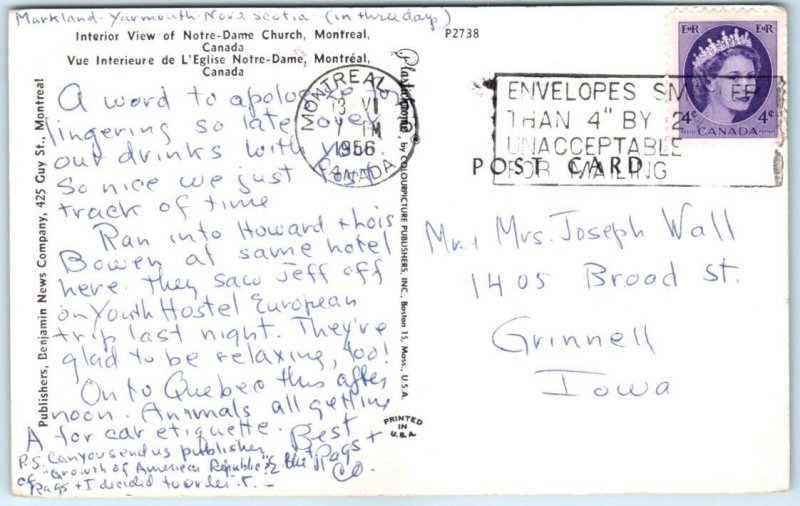 Markland - Yarmouth - Nova Scotia (in three days)
Interior View of Notre-Dame Church, Montreal,
Canada
Vue Interieure de L'Eglise Notre-Dame, Montréal,
Canada
P2738
A word to apologize for
lingering so late over
our drinks with you.
So nice we just lost
track of time
Ran into Howard + Lois
Bowen at same hotel
here. They saw Jeff off
on Youth Hostel European
trip last night. They're
glad to be relaxing, too!
On to Quebec this after
noon. Animals all getting
A for car etiquette. Best
Rags +
Co.
P.S. Can you send us publisher
of "Growth of American Republic"?
Rags + I decided to order it. -
Publishers, Benjamin News Company, 425 Guy St., Montreal
Plastichrome by COLOURPICTURE PUBLISHERS, INC., Boston 15, Mass., U.S.A.
PRINTED
IN
U.S.A.
MONTREAL
13 VI
7 PM
1956
CANADA
ENVELOPES SMALLER
THAN 4" BY 2
UNACCEPTABLE
FOR MAILING
E II R E II R
4¢ 4¢
CANADA
POSTES POSTAGE
POST CARD
Mr., Mrs. Joseph Wall
1405 Broad St.
Grinnell
Iowa